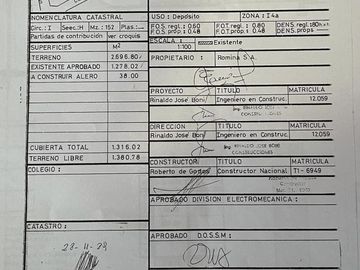 NOMENCLATURA CATASTRAL
Circ.: I Secc.: H Mz.: 152 Plas.:
Partidas de contribución ver croquis
SUPERFICIES M²
TERRENO 2696.80
EXISTENTE APROBADO 1.278.02
A CONSTRUIR ALERO 38.00
CUBIERTA TOTAL 1.316.02
TERRENO LIBRE 1.380.78
COLEGIO :
CATASTRO :
USO : Depósito ZONA : I4a
F.O.S. regl. : 0.60 F.O.T. regl. : 0.80
F.O.S. prop. : 0.48 F.O.T. prop. : 0.48
ESCALA : 1:100 Existente
PROPIETARIO : Romina S.A.
PROYECTO TITULO MATRICULA
Rinaldo José Boni Ingeniero en Construc. 12.059
CONSTRUCCIONES
DIRECCION TITULO MATRICULA
Rinaldo José Boni Ingeniero en Construc. 12.059
Ing. RINALDO JOSE BONI
CONSTRUCCIONES
CONSTRUCTOR TITULO MATRICULA
Constructor Nacional T1 - 6949
APROBADO DIVISION ELECTROMECANICA :
APROBADO D.O.S.S.M :